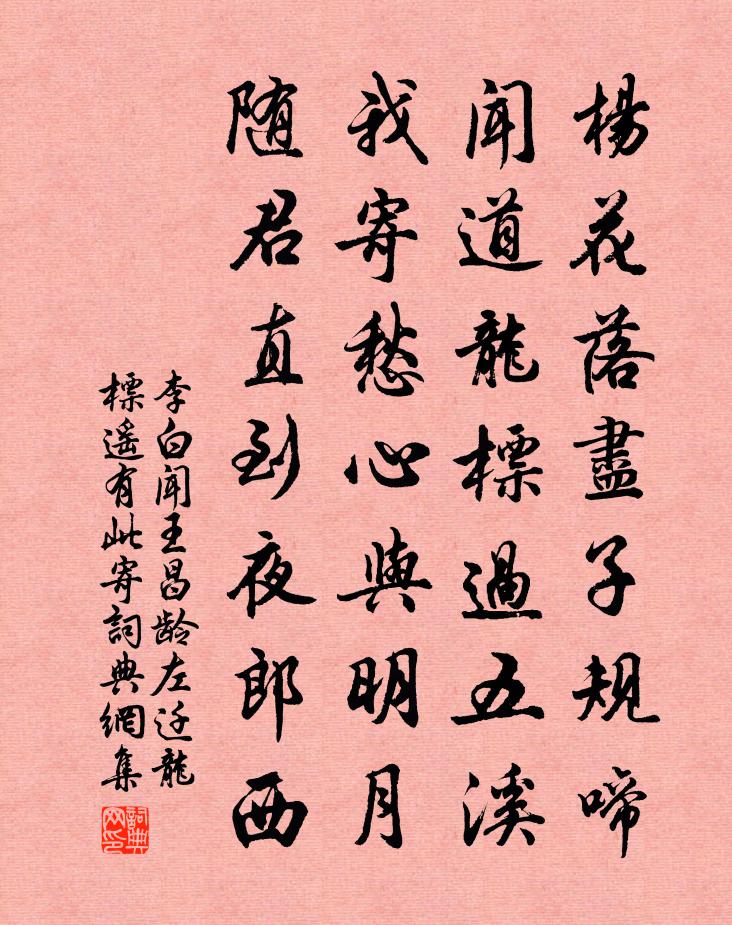 楊花落盡子規啼
聞道龍標過五溪
我寄愁心與明月
随君直到夜郎西
李白聞王昌龄左迁龍
標遥有此寄詞典網集
詞典
网印